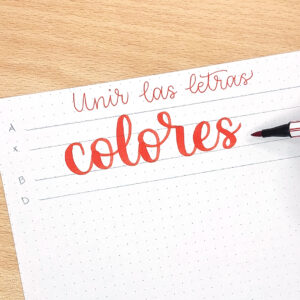 Unir las letras
A
x
colores
B
D